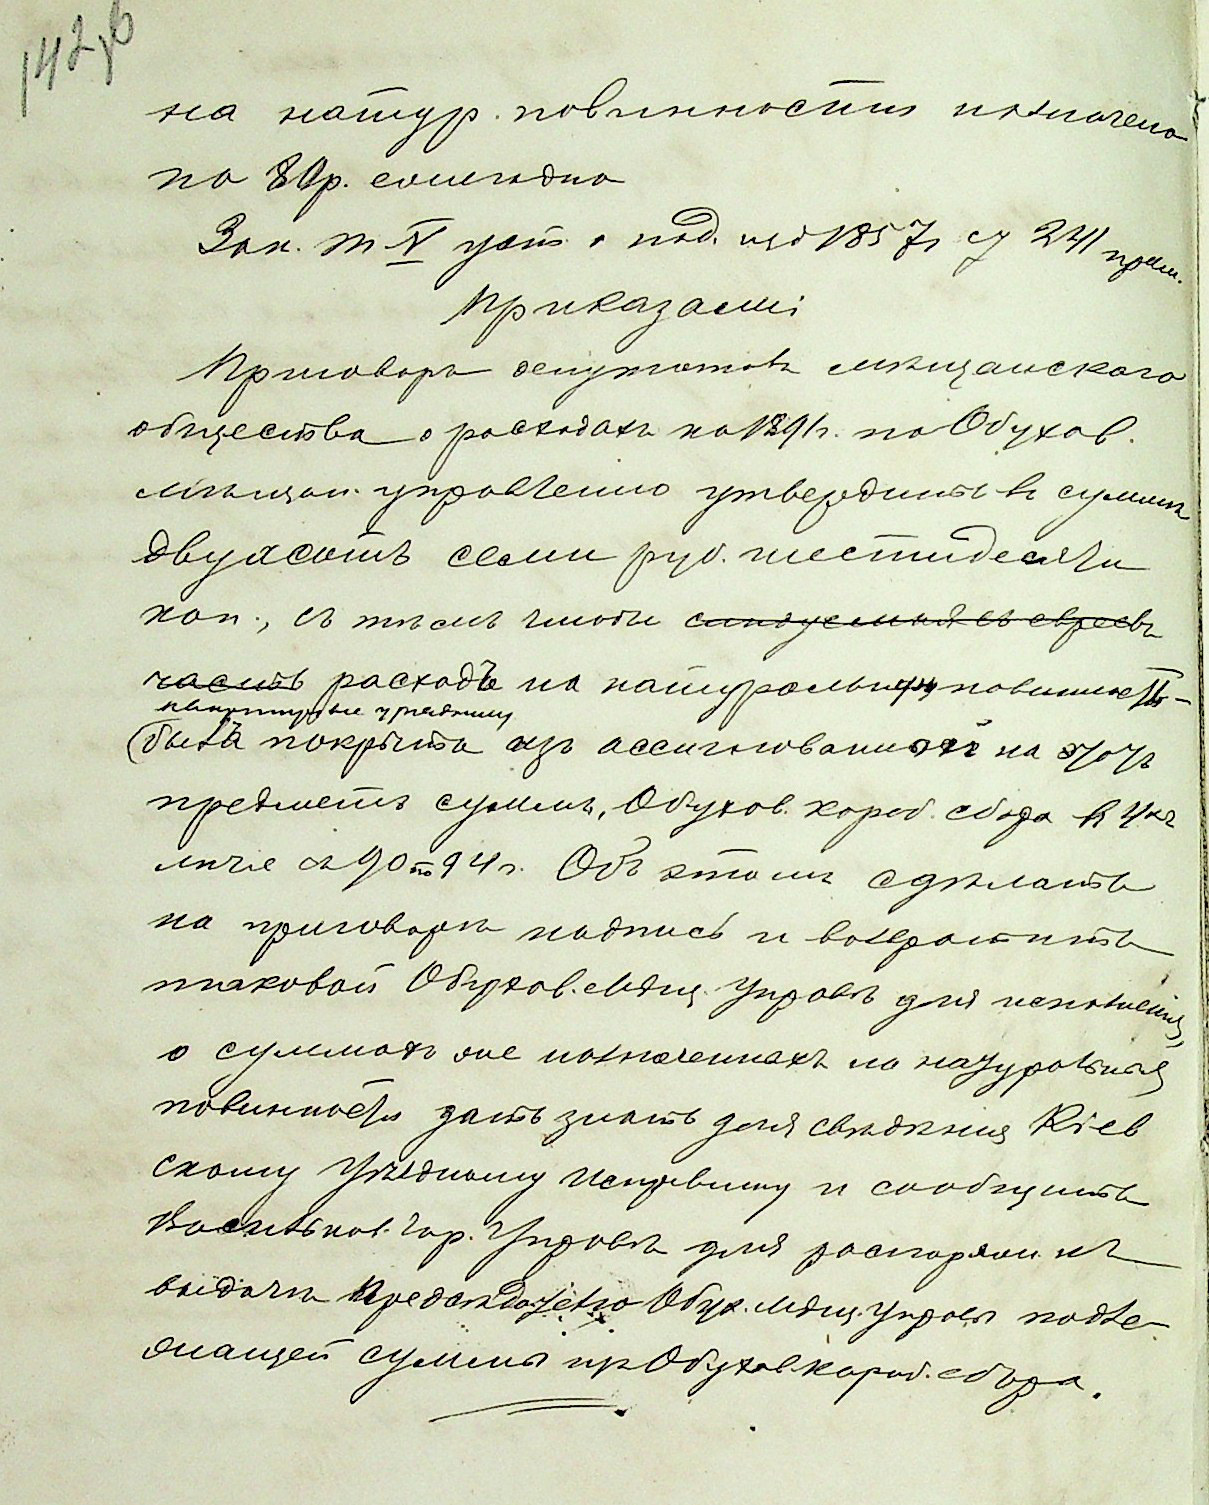 142 об
на натур. повинности назначено
по 80 р. ежегодно
Зак. т V уст. о под. изд 1857 г ст 241 прим.
Приказали:
Приговоръ депутатовъ мѣщанского
общества о расходахъ на 1891 г. по Обухов.
мѣщан. управленію утвердить въ суммѣ
двухсотъ семи руб. шестидесяти
коп., съ тѣмъ чтобы слѣдуемая съ евреевъ
часть расходъ на натуральную повинность
квартирные уряднику
былъ покрытъ изъ ассигнованной на этотъ
предметъ суммы, Обухов. короб. сбора въ 4хъ
лѣтіе съ 90 по 94 г. Объ этомъ сдѣлать
на приговорѣ надпись и возвратить
таковой Обухов. Мѣщ. Управѣ для исполненія,
о суммахъ же назначенныхъ на натуральныя
повинности дать знать для свѣдѣнія Кіев
скому Уѣздному Исправнику и сообщить
Васильков. Гор. Управѣ для распоряж. къ
выдачѣ Предсѣдателю Обух. Мѣщ. Управы подле-
жащей суммы из Обухов. короб. сбора.